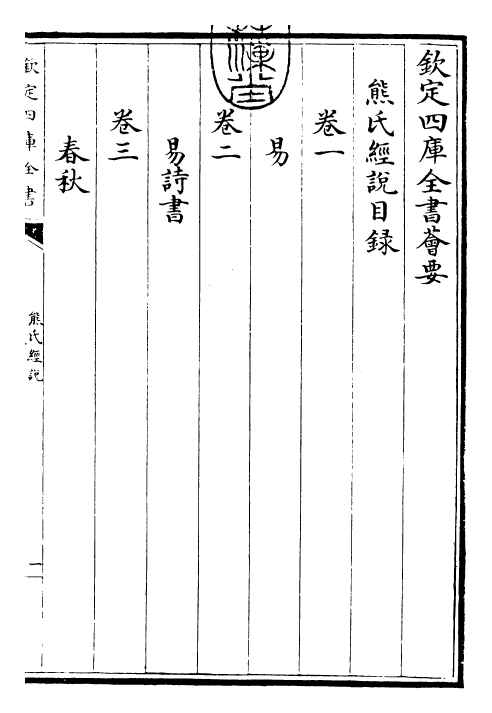 欽定四庫全書薈要
熊氏經說目録
卷一
易
卷二
易詩書
卷三
春秋
欽定四庫全書
熊氏經說
一